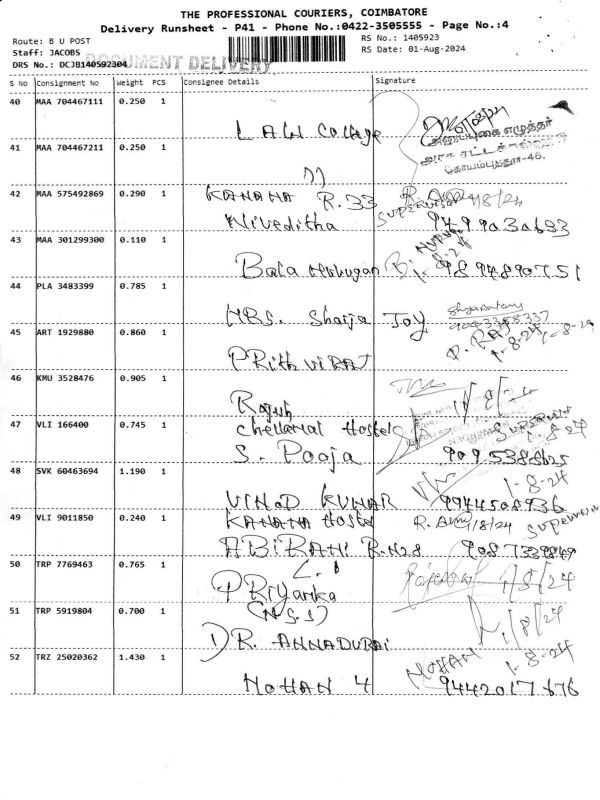 THE PROFESSIONAL COURIERS, COIMBATORE
Delivery Runsheet - P41 - Phone No.:0422-3505555 - Page No.:4
Route: B U POST
RS No.: 1405923
Staff: JACOBS
RS Date: 01-Aug-2024
DRS No.: DCJB140592304
DOCUMENT DELIVERY
S No Consignment No Weight PCS Consignee Details Signature
40 MAA 704467111 0.250 1
LAW College
அனுப்புகை எழுத்தர்
41 MAA 704467211 0.250 1
கோயம்புத்தூர்-46.
42 MAA 575492869 0.290 1 KANAHA R.33
Supervisor
Niveditha
43 MAA 301299300 0.110 1
Bala 9894890751
44 PLA 3483399 0.785 1
MRS. Shaija Joy
45 ART 1929880 0.860 1
1-8-24
PRithviRAJ
46 KMU 3528476 0.905 1
1/8/24
47 VLI 166400 0.745 1 Chellamal Hostel
1-8-24
S. Pooja
48 SVK 60463694 1.190 1
1-8-24
VINOD KUMAR 9944508936
49 VLI 9011850 0.240 1 KANAHA Hostel
1/8/24 Supervisor
ABIRAMI R.N28
50 TRP 7769463 0.765 1
PRiyanka 1/8/24
51 TRP 5919804 0.700 1 (N.S.S)
1/8/24
DR. ANNADURAI
52 TRZ 25020362 1.430 1
MOHAN
1-8-24
MOHAN 4 9442017676